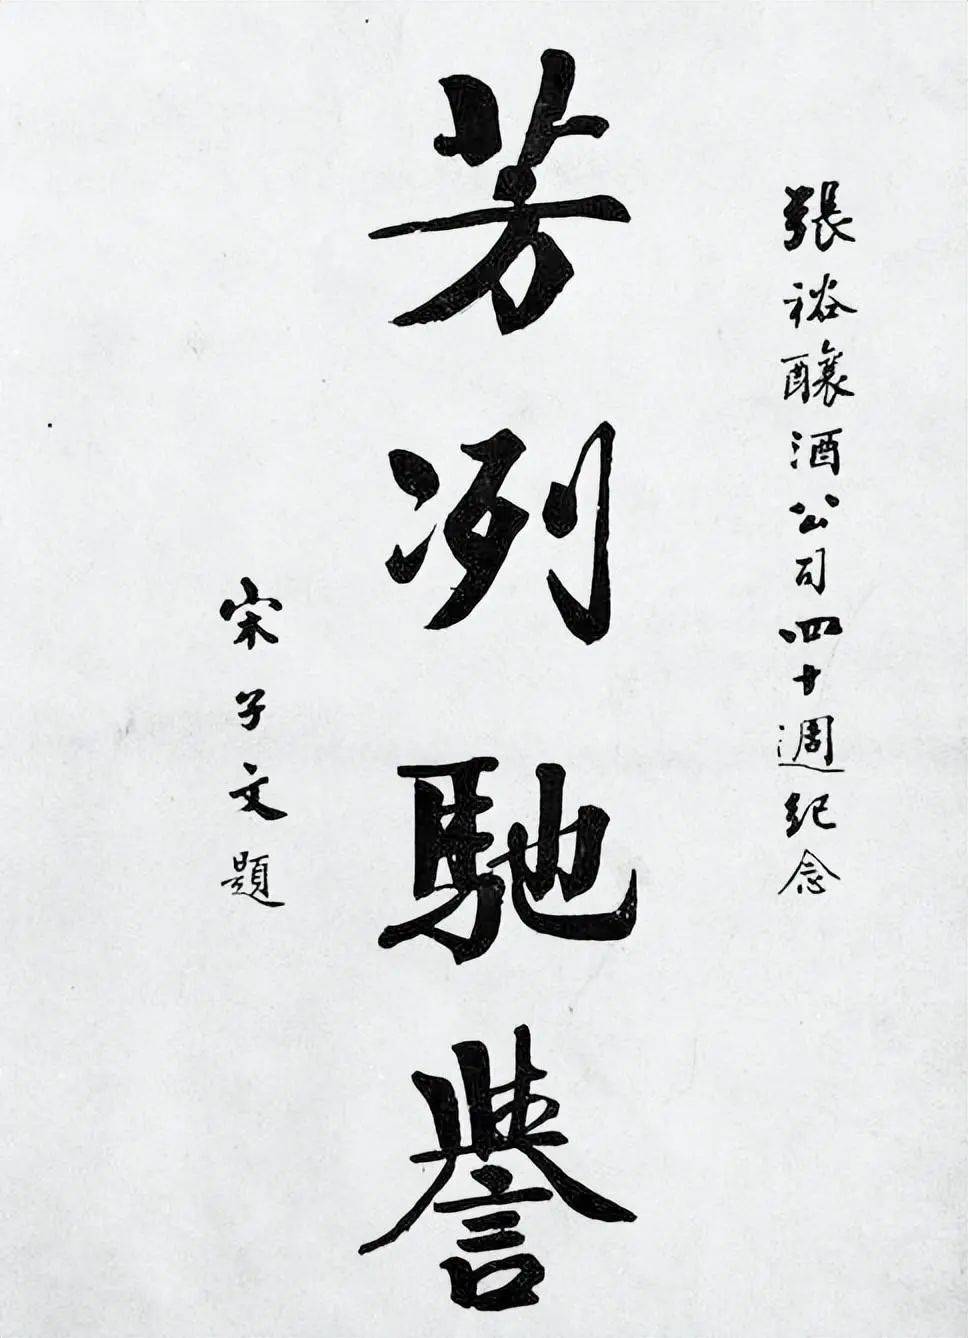 張裕釀酒公司四十週紀念
芳冽馳譽
宋子文題